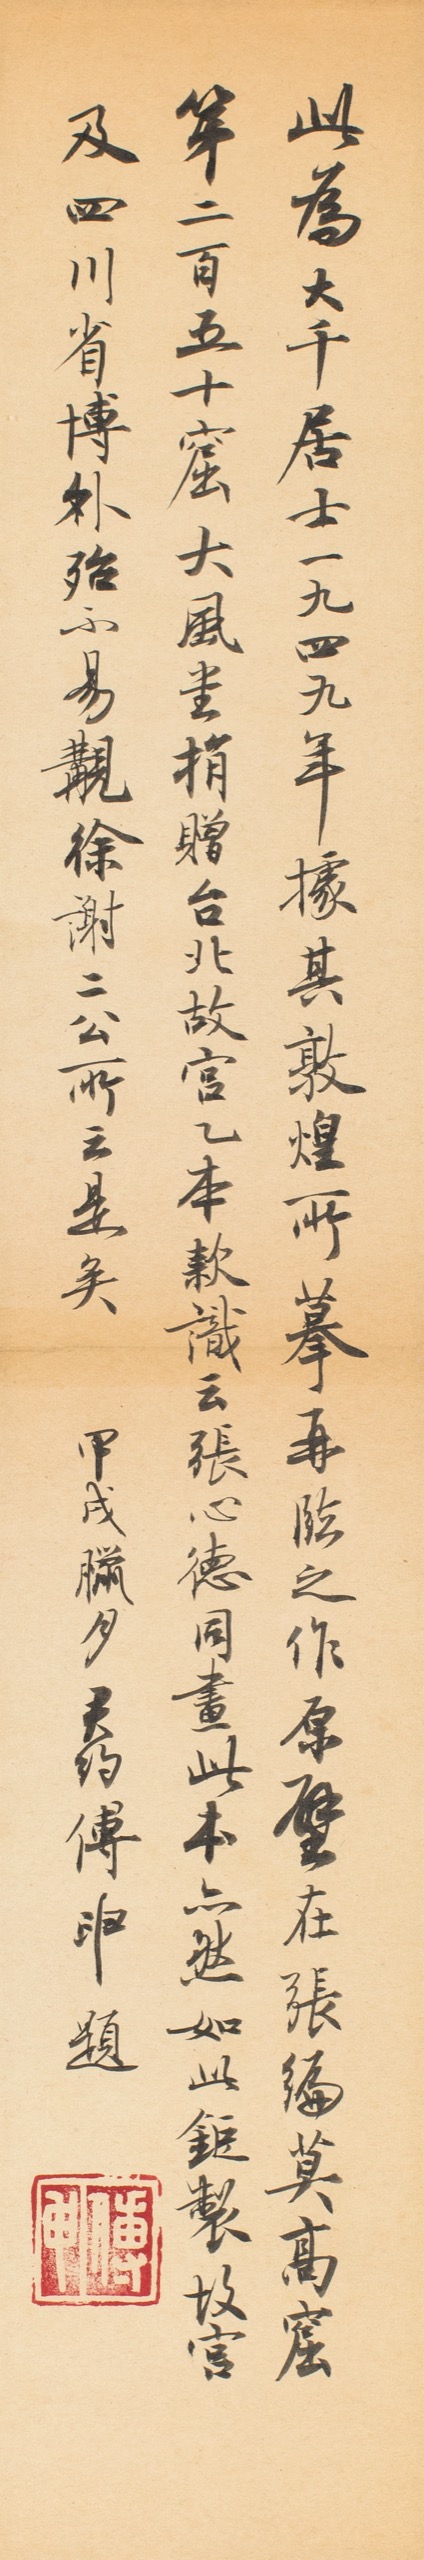 此為大千居士一九四九年據其敦煌所摹再臨之作原壁在張編莫高窟
第二百五十窟大風堂捐贈台北故宮乙本款識云張心德同畫此本亦然如此鉅製故宮
及四川省博外殆不易覯徐謝二公所云是矣
甲戌臘月君約傅申題
傅申